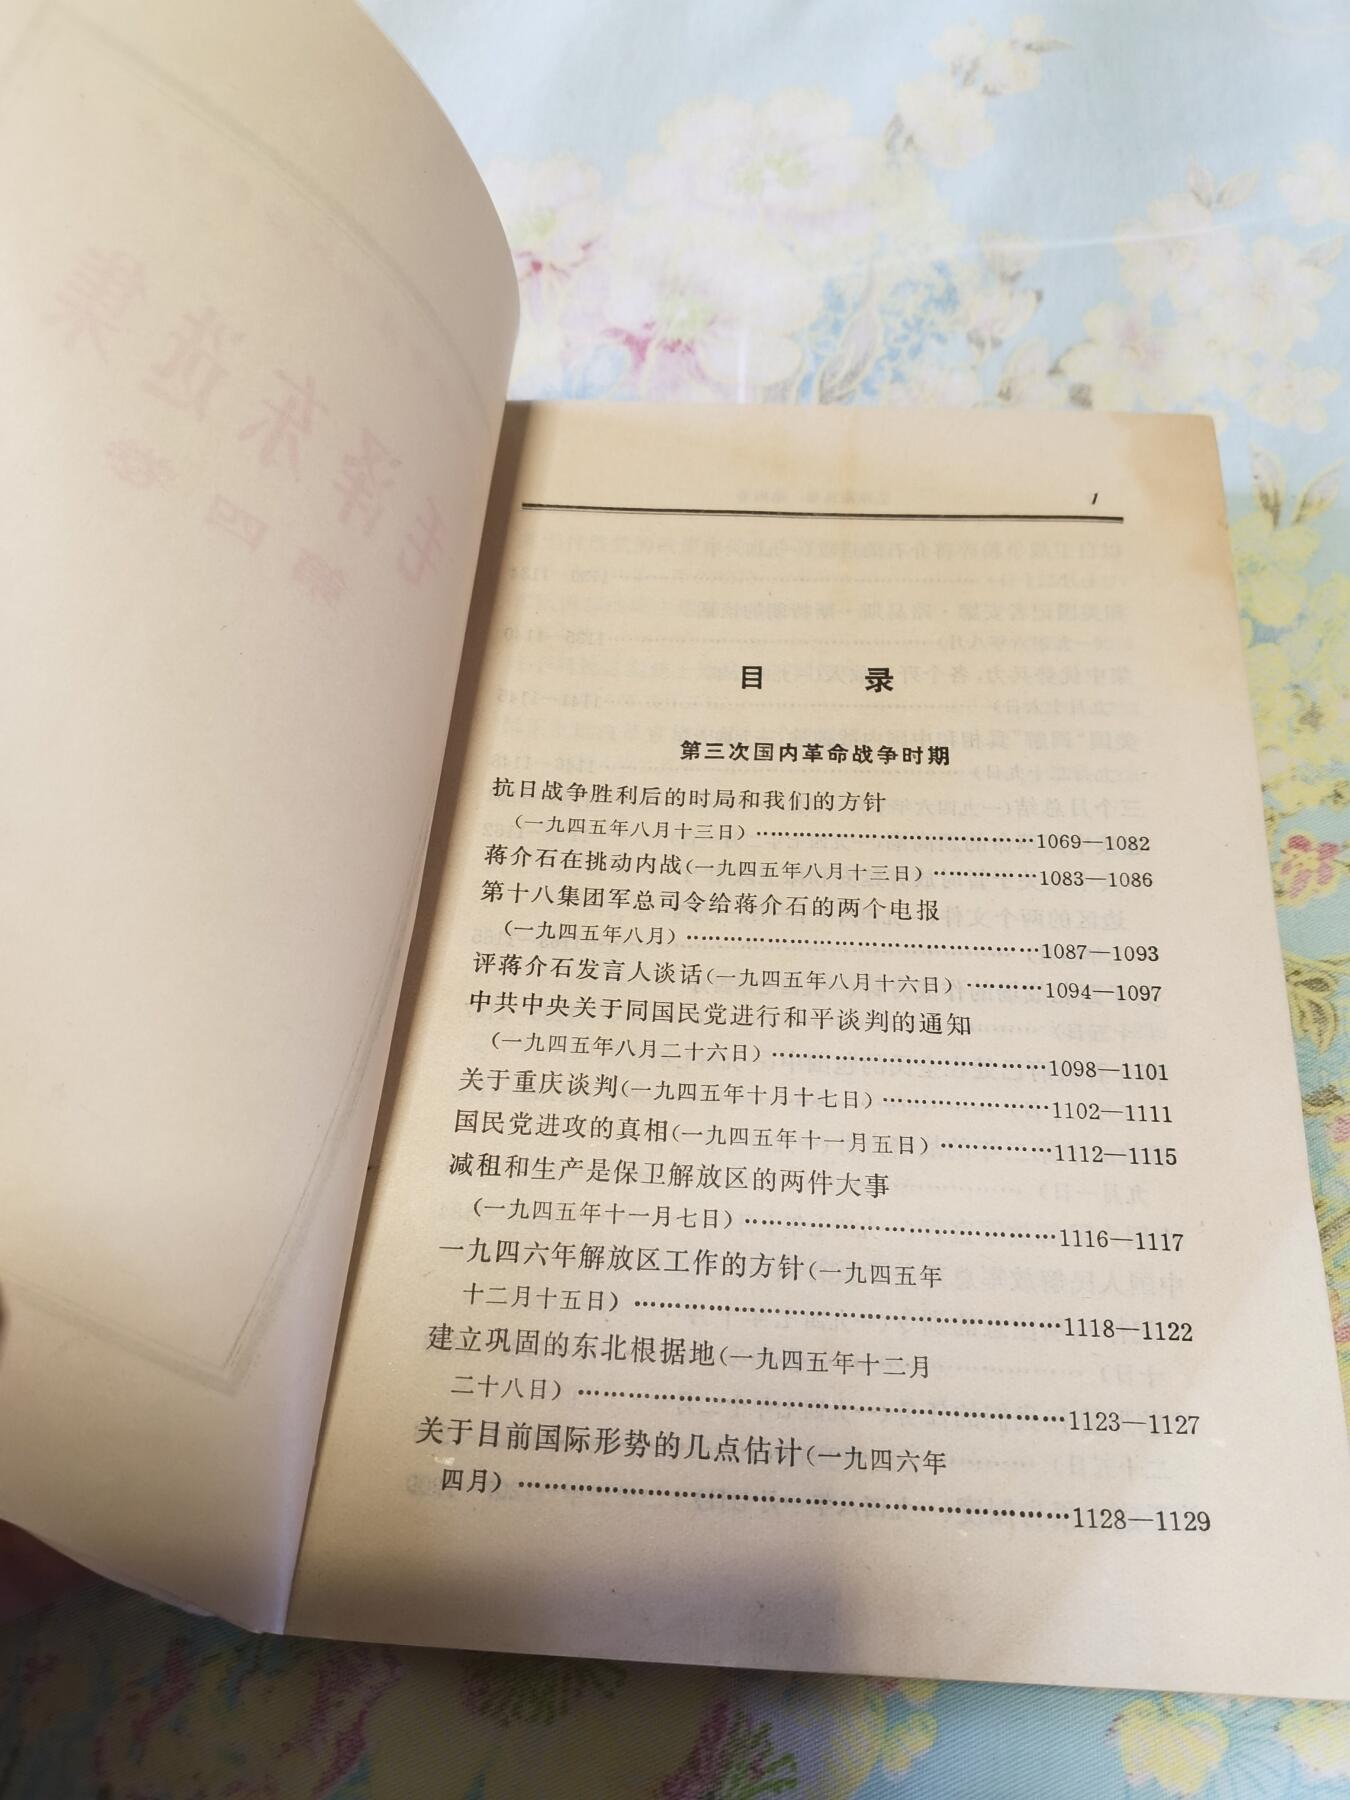 毛泽东选集
第四卷
1
目 录
第三次国内革命战争时期
抗日战争胜利后的时局和我们的方针
(一九四五年八月十三日)…………………………………1069—1082
蒋介石在挑动内战(一九四五年八月十三日)……………1083—1086
第十八集团军总司令给蒋介石的两个电报
(一九四五年八月)…………………………………………1087—1093
评蒋介石发言人谈话(一九四五年八月十六日)…………1094—1097
中共中央关于同国民党进行和平谈判的通知
(一九四五年八月二十六日)………………………………1098—1101
关于重庆谈判(一九四五年十月十七日)…………………1102—1111
国民党进攻的真相(一九四五年十一月五日)……………1112—1115
减租和生产是保卫解放区的两件大事
(一九四五年十一月七日)…………………………………1116—1117
一九四六年解放区工作的方针(一九四五年
十二月十五日)………………………………………………1118—1122
建立巩固的东北根据地(一九四五年十二月
二十八日)……………………………………………………1123—1127
关于目前国际形势的几点估计(一九四六年
四月)…………………………………………………………1128—1129